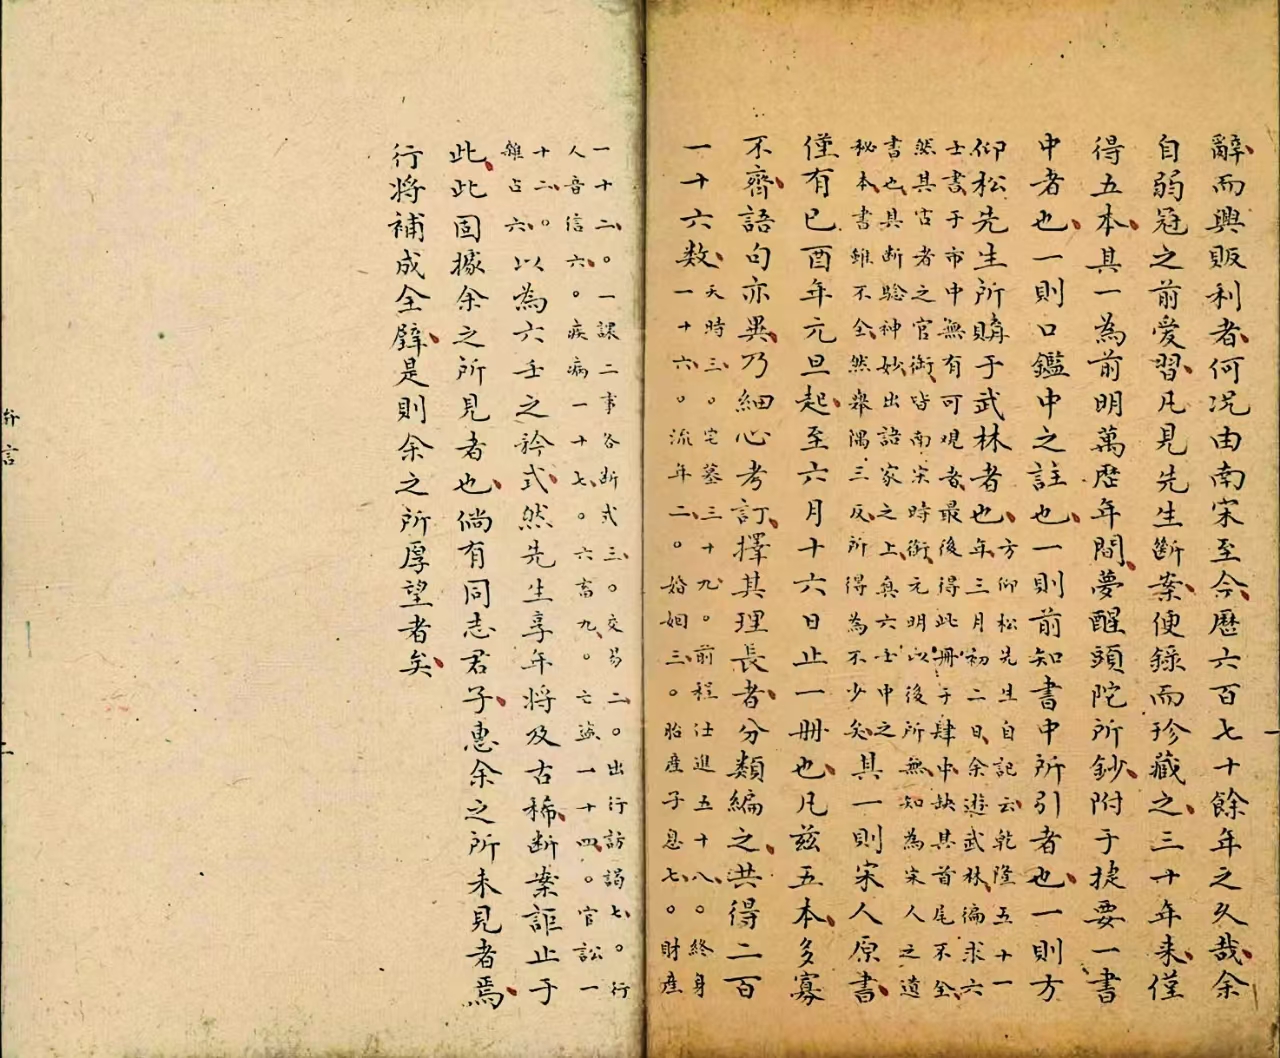 辭而興販利者何況由南宋至今歷六百七十餘年之久哉余
自弱冠之前愛習凡見先生斷案便錄而珍藏之三十年來僅
得五本其一為前明萬歷年間夢醒頭陀所鈔附于捷要一書
中者也一則口鑑中之註也一則前知書中所引者也一則方
仰松先生所購于武林者也方仰松先生自記云乾隆五十一
年三月初二日余遊武林徧求六
士書于市中無有可觀者最後得此冊于肆中缺其首尾不全
然其古者之官銜皆南宋時銜元明以後所無知為宋人之遺
書也其断驗神妙出諸家之上真六壬中之
秘本書雖不全然舉隅三反所得為不少矣其一則宋人原書
僅有已酉年元旦起至六月十六日止一冊也凡茲五本多寡
不齊語句亦異乃細心考訂擇其理長者分類編之共得二百
一十六数天時三。宅墓三十九。前程仕進五十八。終身
一十六。流年二。婚姻三。胎產子息七。財產
一十二。一課二事各断式三。交易二。出行訪謁七。行
人音信六。疾病一十七。六畜九。亡盜一十四。官訟一
十二。
雜占六。以為六壬之矜式然先生享年將及古稀断案詎止于
此此固據余之所見者也倘有同志君子惠余之所未見者焉
行將補成全璧是則余之所厚望者矣
弁言
二